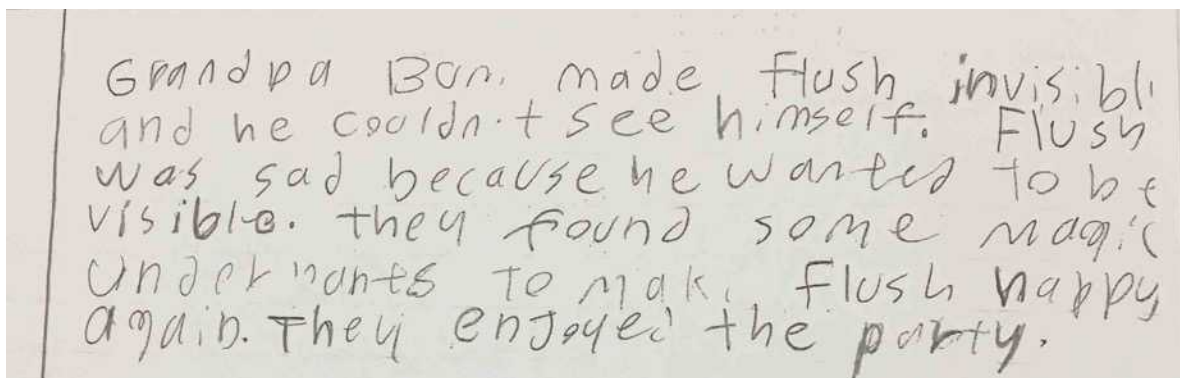 Grandpa Bom made flush invisible
and he couldn't see himself. Flush
was sad because he wanted to be
visible. they found some magic
underpants to make flush happy
again. They enjoyed the party.